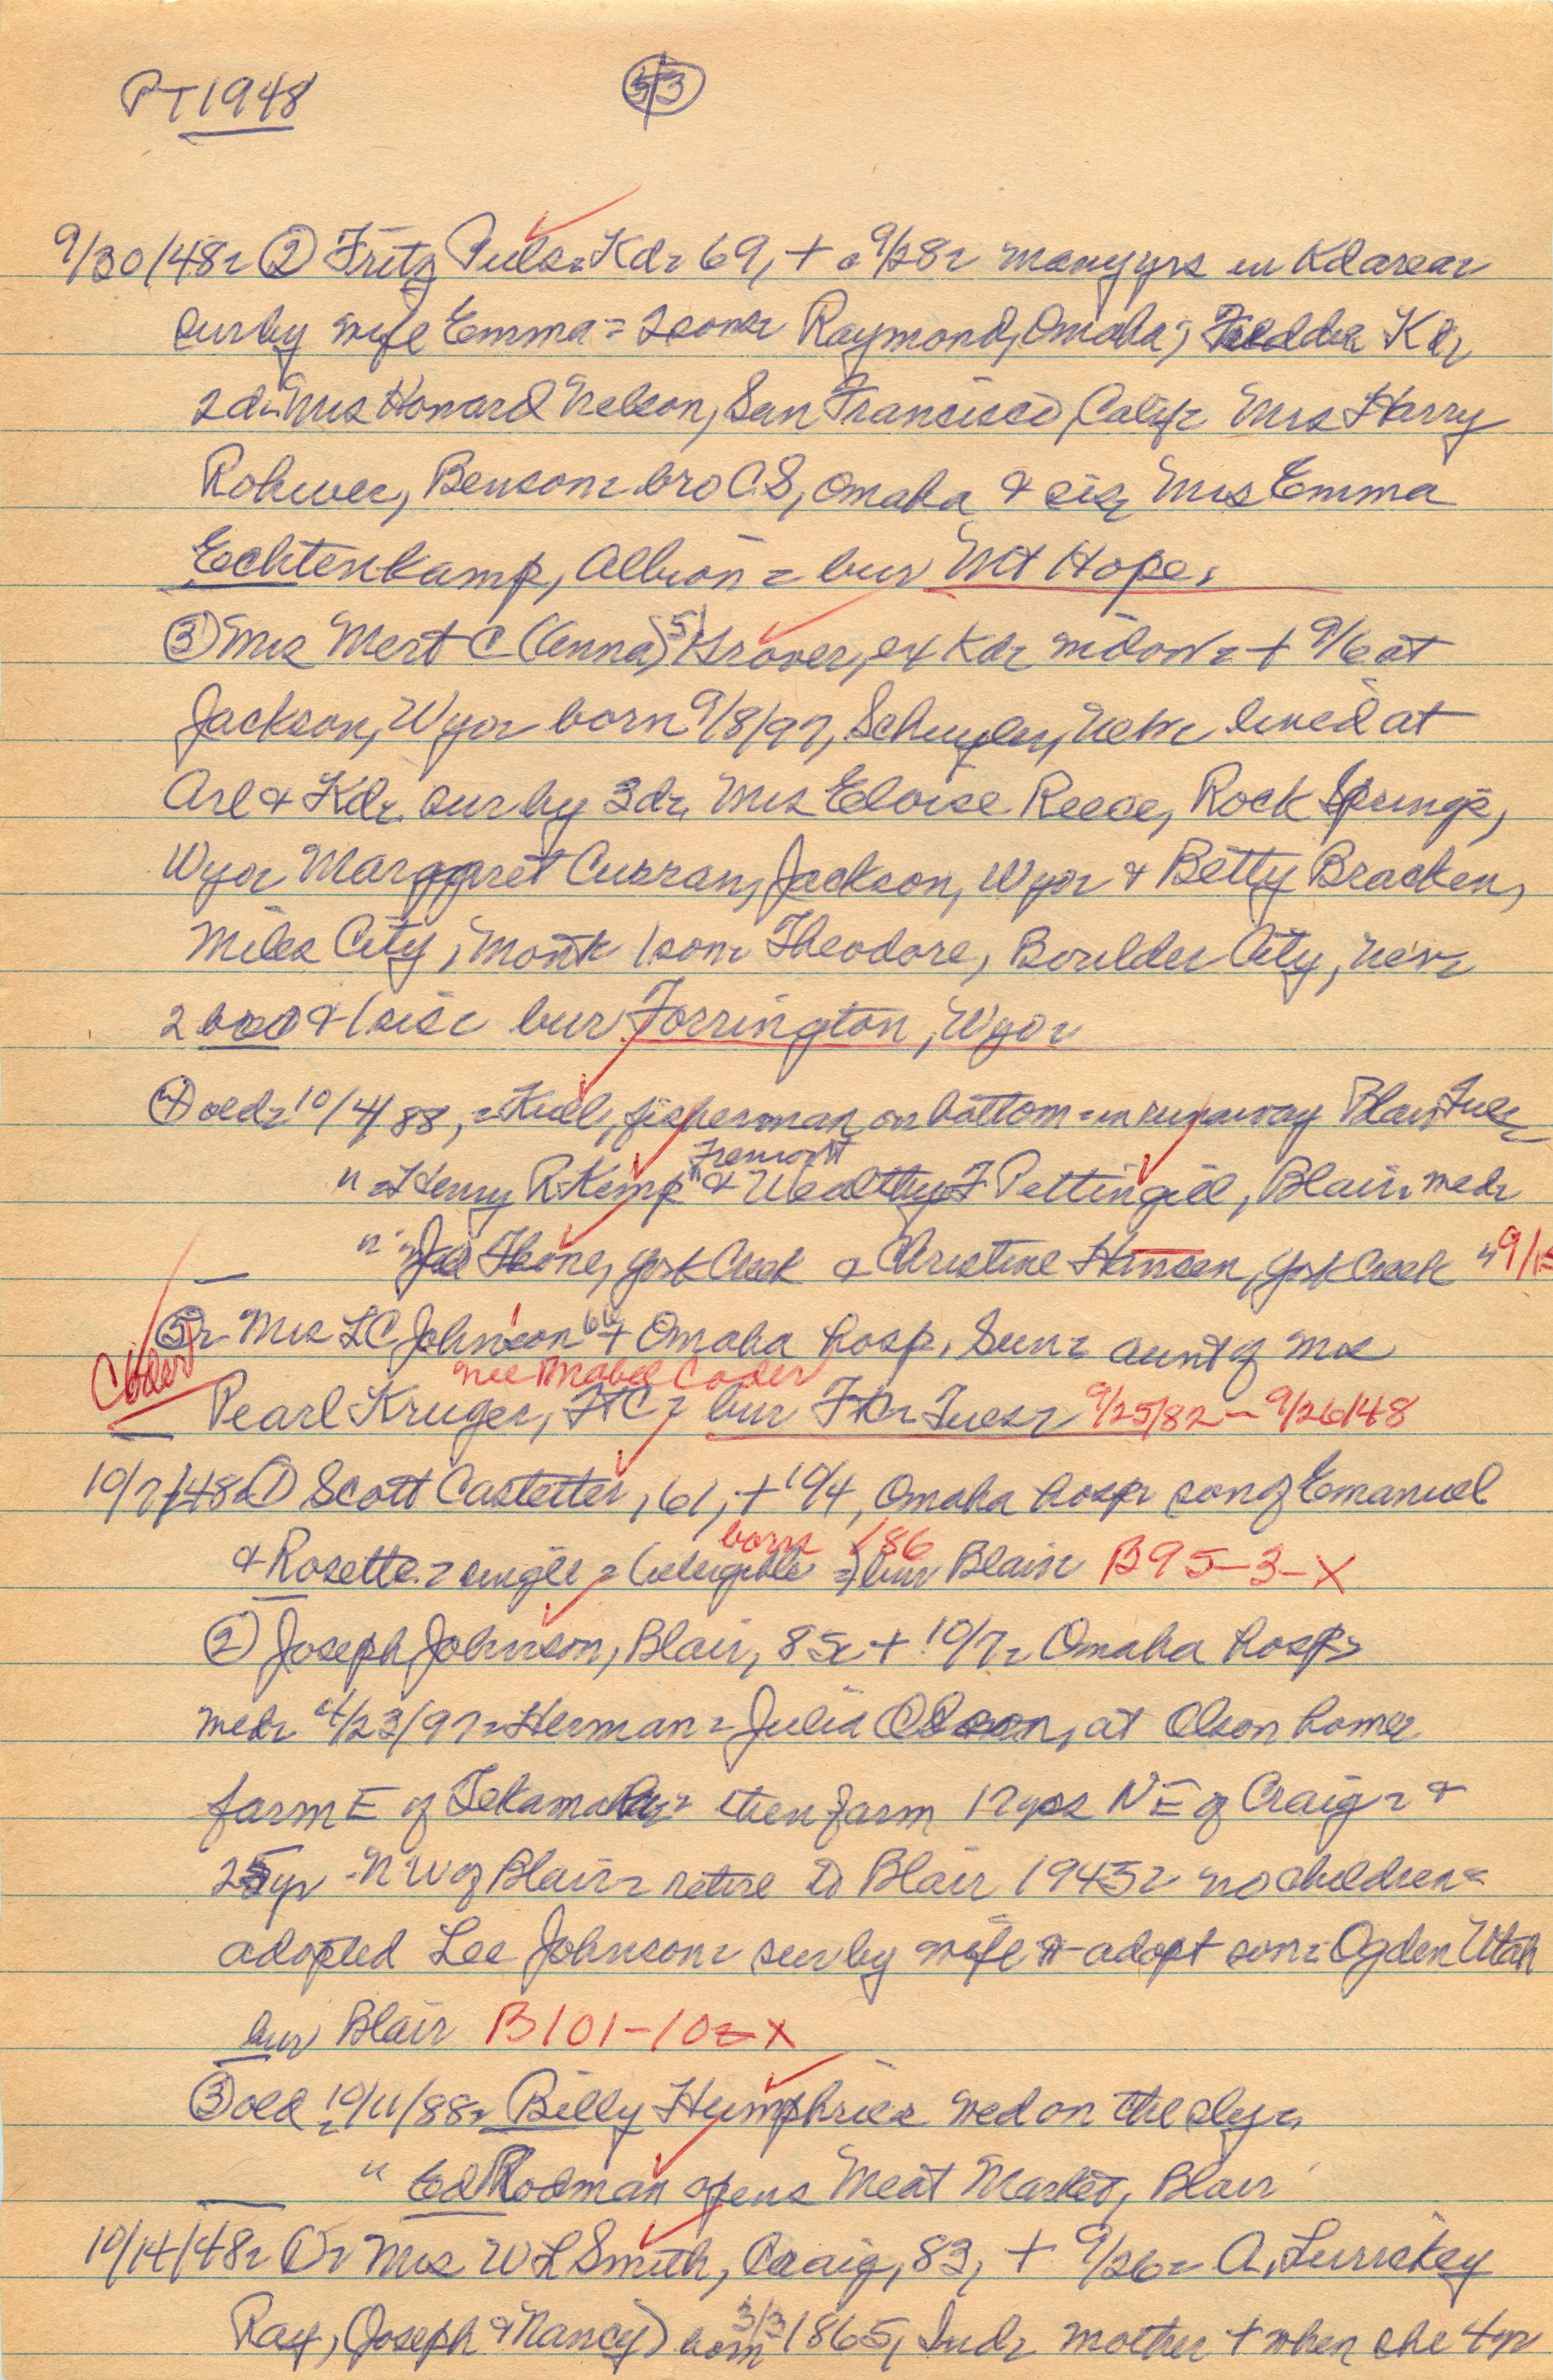 PT 1948 53
9/30/48- ② Fritz Puls- Kd- 69, + - 9/28- many yrs in Kd area-
sur by wife Emma = 2 sons- Raymond, Omaha; Kd-
2 d- Mrs Howard Nelson, San Francisco, Calif- Mrs Harry
Rohwer, Benson- bro C.S, Omaha & sis, Mrs Emma
Echtenkamp, Albion - bur Mt Hope.
③ Mrs Mert C (Anna) 51 Grover, ex Kd- widow - + 9/6 at
Jackson, Wyo- born 9/8/97, Schuyler, Nebr lived at
Arl & Kd- sur by 3 d- Mrs Eloise Reece, Rock Springs,
Wyo- Marggret Curran, Jackson, Wyo- & Betty Bracken,
Miles City, Mont 1 son- Theodore, Boulder City, Nev-
2 bro & 1 sis- bur Torrington, Wyo-
④ old- 10/4/88, - fisherman on bottom - in runaway Blair Tues
Fremont
" - Henry R Kemp " & Wealthy F Pettingill, Blair- med-
" - Thone, York Creek & Christine Hansen, York Creek " 9/15
⑤- Mrs LC Johnson 66 + Omaha hosp, Sun- aunt of Mrs
Coder nee Mabel Coder
Pearl Kruger, FtC- bur - Tues- 9/25/82 - 9/26/48
10/7/48- ① Scott Castetter, 61, + 10/4, Omaha hosp- son of Emanuel
born /86
& Rosette - single - ( ) bur Blair B95-3-X
② Joseph Johnson, Blair, 85- + 10/7- Omaha hosp-
med- 4/23/97- Herman - Julia Olson, at Olson home
farm E of Tekamah - then farm 12 yrs NE of Craig - &
25 yr - NW of Blair- retire to Blair 1945- no children -
adopted Lee Johnson- sur by wife & adopt son- Ogden Utah
bur Blair B101-10-X
③ old 10/11/88- Billy Humphries wed on the sly-
" Ed Rodman opens Meat Market, Blair
10/14/48- ①- Mrs W L Smith, Craig, 83, + 9/26-
Ray, (Joseph & Nancy) born 3/3 1865, Ind- mother + when she 4 yr